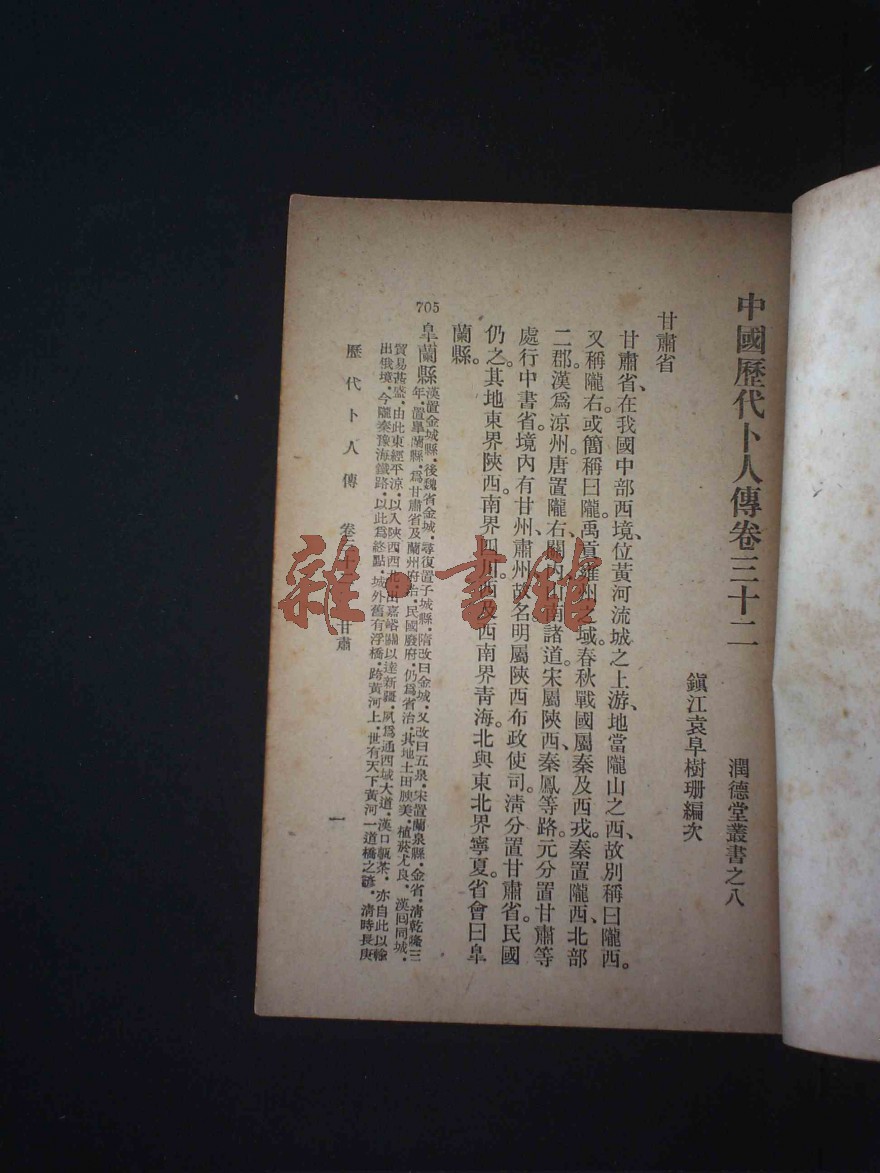 中國歷代卜人傳卷三十二
潤德堂叢書之八
鎮江袁阜樹珊編次
甘肅省
甘肅省、在我國中部西境、位黃河流域之上游、地當隴山之西、故別稱曰隴西。
又稱隴右。或簡稱曰隴、禹貢雍州之域。春秋戰國屬秦及西戎。秦置隴西、北部
二郡、漢爲涼州、唐置隴右、關內、山南諸道。宋屬陝西、秦鳳等路。元分置甘肅等
處行中書省。境內有甘州、肅州、故名。明屬陝西布政使司。清分置甘肅省。民國
仍之。其地東界陝西。南界四川。西及西南界靑海。北與東北界寧夏。省會曰皐
蘭縣。
皐蘭縣
漢置金城縣・後魏省金城・尋復置子城縣・隋改曰金城・又改曰五泉・宋置蘭泉縣・金省・清乾隆三
年・置皐蘭縣・爲甘肅省及蘭州府治・民國廢府・仍爲省治・其地土田腴美・植菸尤良・漢回同城・
貿易甚盛・由此東經平涼・以入陝西・西北出嘉峪關以達新疆・夙爲通西域大道・漢口甎茶・亦自此以輸
出俄境・今隴秦豫海鐵路・以此爲終點・城外舊有浮橋・跨黃河上・世有天下黃河一道橋之諺・清時長庚
705
歷代卜人傳 卷三十二 甘肅
一
雜·書館